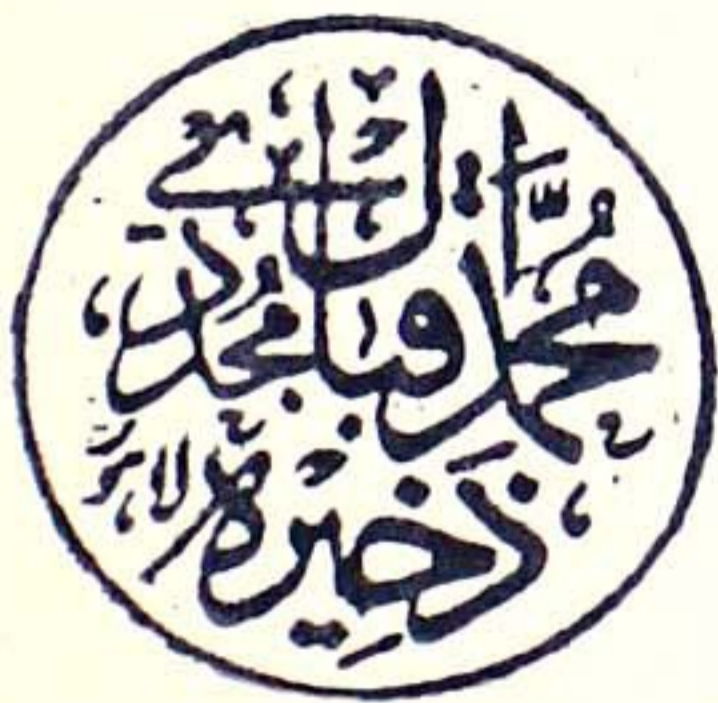 ذَخِیرہ
مُحمّد اقبال مُجدّدی
لاہور